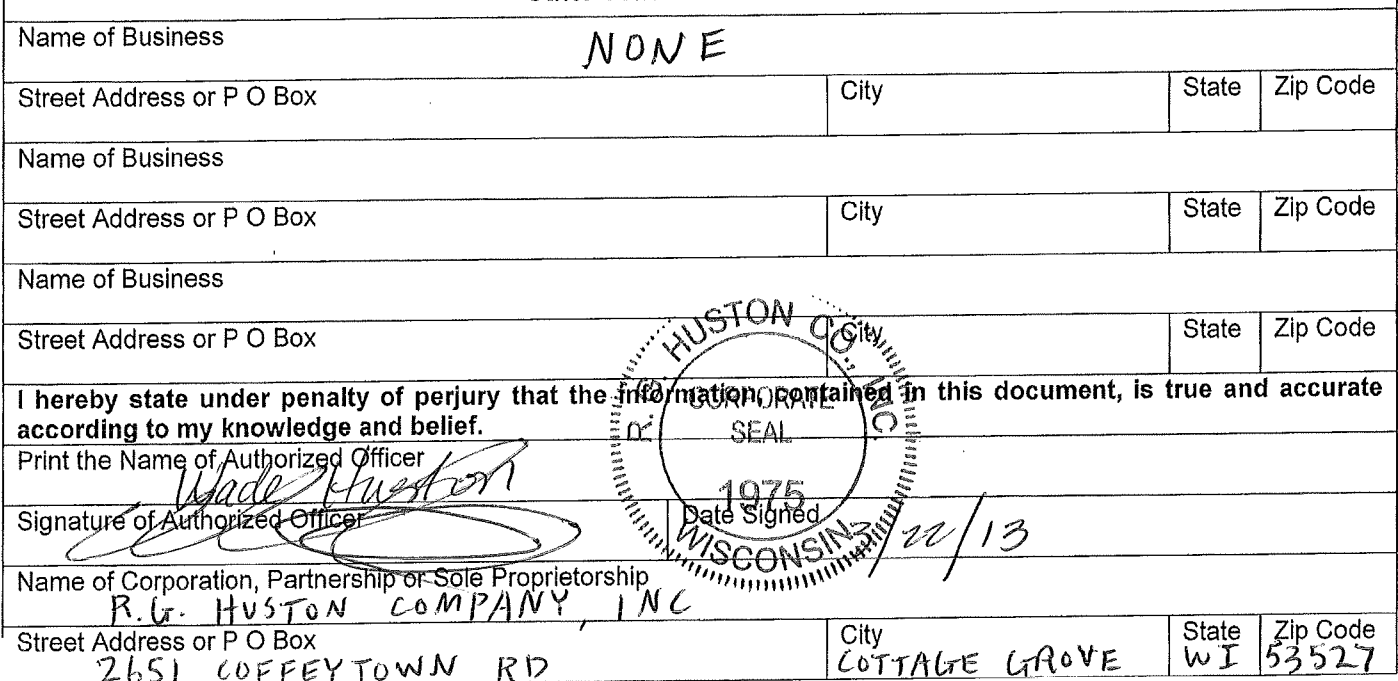 Name of Business NONE
Street Address or P O Box City State Zip Code
Name of Business
Street Address or P O Box City State Zip Code
Name of Business
Street Address or P O Box City State Zip Code
I hereby state under penalty of perjury that the information, contained in this document, is true and accurate
according to my knowledge and belief.
R. G. HUSTON CO., INC.
CORPORATE
SEAL
1975
WISCONSIN
Print the Name of Authorized Officer
Wade Huston
Signature of Authorized Officer Date Signed 3/22/13
Name of Corporation, Partnership or Sole Proprietorship
R.G. HUSTON COMPANY, INC
Street Address or P O Box City State Zip Code
2651 COFFEYTOWN RD COTTAGE GROVE WI 53527